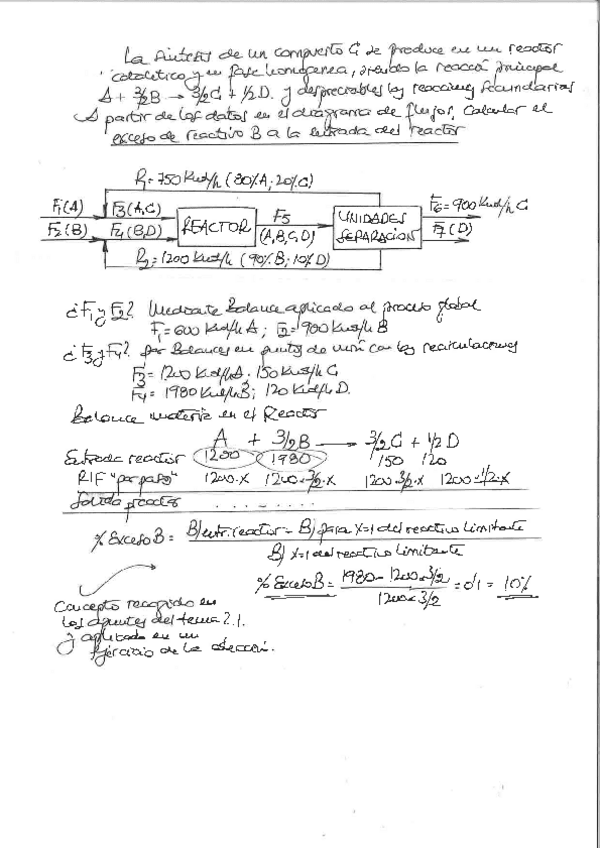 La síntesis de un compuesto C se produce en un reactor
catalítico y en fase homogenea, siendo la reacción principal
A + 3/2B → 3/2C + 1/2D. y despreciables las reacciones secundarias
A partir de los datos en el diagrama de flujos, calcular el
exceso de reactivo B a la entrada del reactor
R1=750 Kmol/h (80%A; 20%C)
F1(A) F3(A,C) F5 UNIDADES F6=900 Kmol/h C
REACTOR
F2(B) F4(B,D) (A,B,C,D) SEPARACION F7(D)
R2=1200 Kmol/h (90%B; 10%D)
¿F1 y F2? Mediante Balance aplicado al proceso global
F1=600 Kmol/h A; F2=900 Kmol/h B
¿F3 y F4? por Balances en puntos de unión con las recirculaciones
F3= 1200 Kmol/h A; 150 Kmol/h C
F4= 1980 Kmol/h B; 120 Kmol/h D.
Balance materia en el Reactor
A + 3/2B → 3/2C + 1/2D
Entrada reactor 1200 1980 150 120
RIF "por paso" 1200·x 1200·3/2·x 1200·3/2·x 1200·1/2·x
Salida reactor .........
% Exceso B = B) entr. reactor - B) para x=1 del reactivo limitante
B) x=1 del reactivo limitante
% Exceso B = 1980 - 1200×3/2 = 0'1 = 10%
1200×3/2
Concepto recogido en
los apuntes del tema 2.1.
y aplicado en un
ejercicio de la colección.